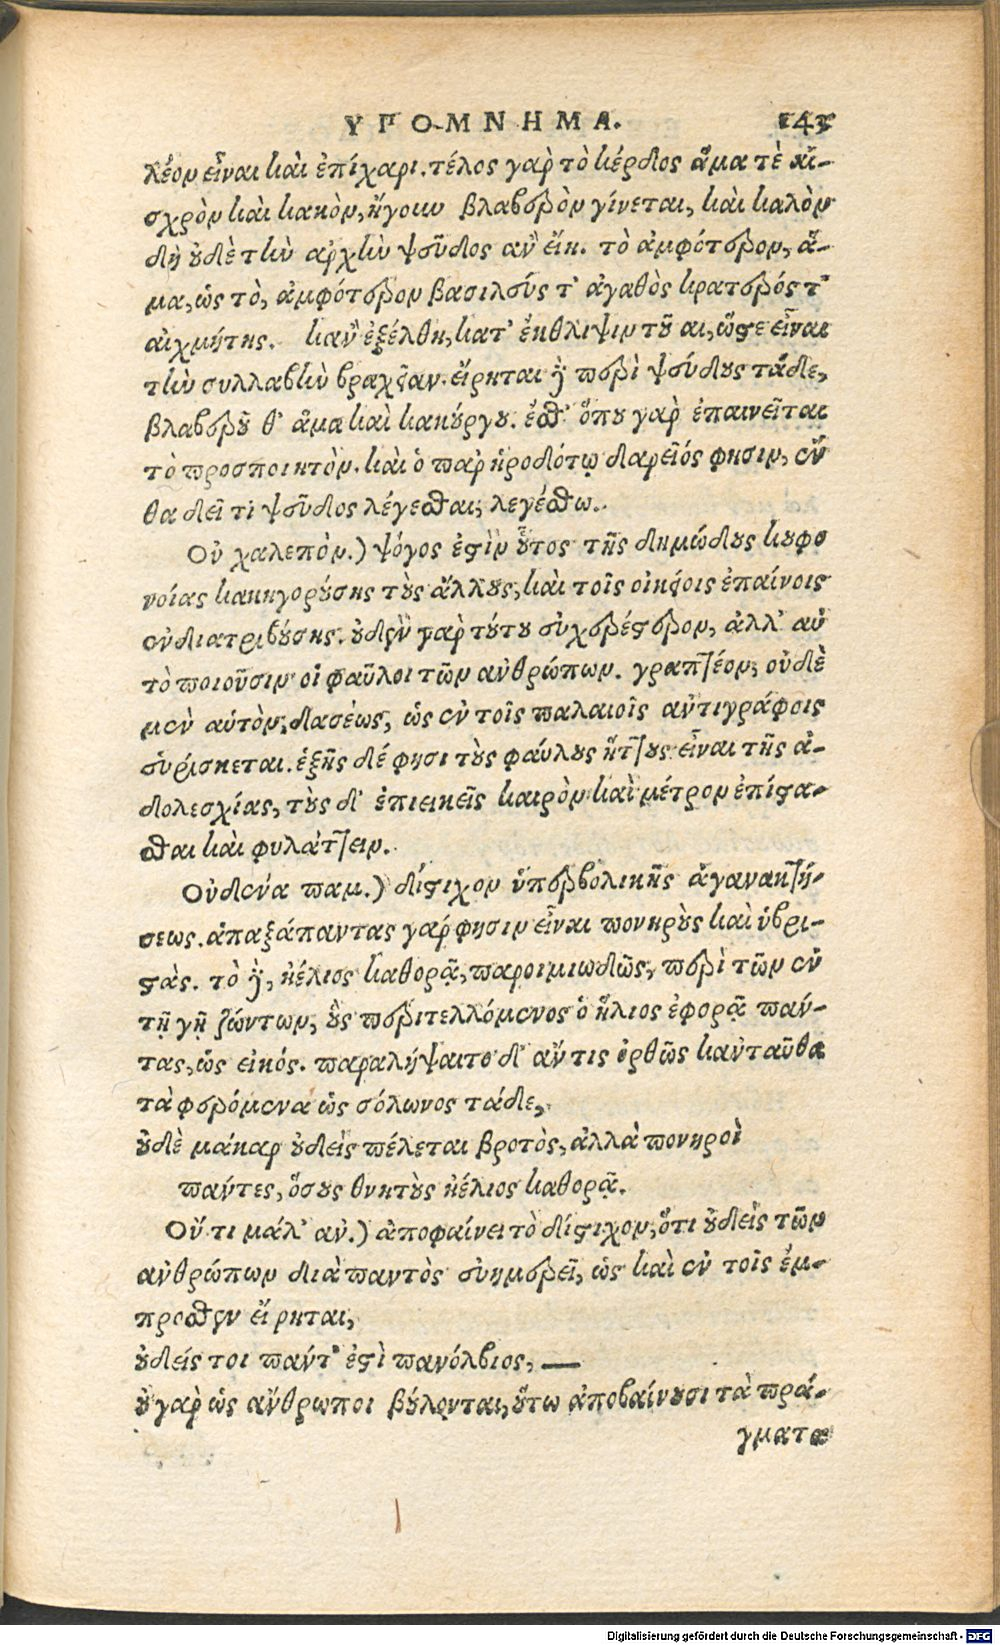 ΥΠΟΜΝΗΜΑ. 145
λέον εἶναι καὶ ἐπίχαρι. τέλος γὰρ τὸ κέρδος ἅμα τὲ αἰ-
σχρὸν καὶ κακὸν, ἤγουν βλαβερὸν γίνεται, καὶ καλὸν
δὴ οὐδὲ τὴν ἀρχὴν ψεῦδος ἂν εἴη. τὸ ἀμφότερον, ἅ-
μα, ὡς τὸ, ἀμφότερον βασιλεύς τ' ἀγαθὸς κρατερός τ'
αἰχμήτης. κἂν ἐξέλθῃ, κατ' ἔκθλιψιν τοῦ αι, ὥστε εἶναι
τὴν συλλαβὴν βραχεῖαν. εἴρηται δὲ περὶ ψεύδους τάδε,
βλαβεροῦ θ' ἅμα καὶ κακούργου. ἔσθ' ὅπου γὰρ ἐπαινεῖται
τὸ προσποιητὸν. καὶ ὁ παρ' ἡροδότῳ δαρεῖός φησιν, ἔν
θα δεῖ τι ψεῦδος λέγεσθαι, λεγέσθω.
Οὐ χαλεπὸν.) ψόγος ἐστὶν οὗτος τῆς δημώδους κουφο
νοίας κακηγορούσης τοὺς ἄλλους, καὶ τοῖς οἰκείοις ἐπαίνοις
ἐνδιατριβούσης. οὐδὲν γὰρ τούτου εὐχερέστερον, ἀλλ' αὐ
τὸ ποιοῦσιν οἱ φαῦλοι τῶν ἀνθρώπων. γραπτέον, οὐδὲ
μὲν αὑτὸν, δασέως, ὡς ἐν τοῖς παλαιοῖς ἀντιγράφοις
εὑρίσκεται. ἑξῆς δέ φησι τοὺς φαύλους ἥττους εἶναι τῆς ἀ-
δολεσχίας, τοὺς δ' ἐπιεικεῖς καιρὸν καὶ μέτρον ἐπίστα-
σθαι καὶ φυλάττειν.
Οὐδένα παμ.) δίστιχον ὑπερβολικῆς ἀγανακτή-
σεως. ἁπαξάπαντας γάρ φησιν εἶναι πονηροὺς καὶ ὑβρι-
στὰς. τὸ δὲ, ἠέλιος καθορᾷ, παροιμιωδῶς, περὶ τῶν ἐν
τῇ γῇ ζώντων, οὓς περιτελλόμενος ὁ ἥλιος ἐφορᾷ πάν-
τας, ὡς εἰκός. παραλήψαιτο δ' ἄν τις ὀρθῶς κἀνταῦθα
τὰ φερόμενα ὡς σόλωνος τάδε,
οὐδὲ μάκαρ οὐδεὶς πέλεται βροτὸς, ἀλλὰ πονηροὶ
πάντες, ὅσους θνητοὺς ἠέλιος καθορᾷ.
Οὔ τι μάλ' ἂν.) ἀποφαίνει τὸ δίστιχον, ὅτι οὐδεὶς τῶν
ἀνθρώπων διὰ παντὸς εὐημερεῖ, ὡς καὶ ἐν τοῖς ἔμ-
προσθεν εἴρηται,
οὐδείς τοι πάντ' ἐστὶ πανόλβιος, —
οὐ γὰρ ὡς ἄνθρωποι βούλονται, οὕτω ἀποβαίνουσι τὰ πρά-
γματα
Digitalisierung gefördert durch die Deutsche Forschungsgemeinschaft - DFG